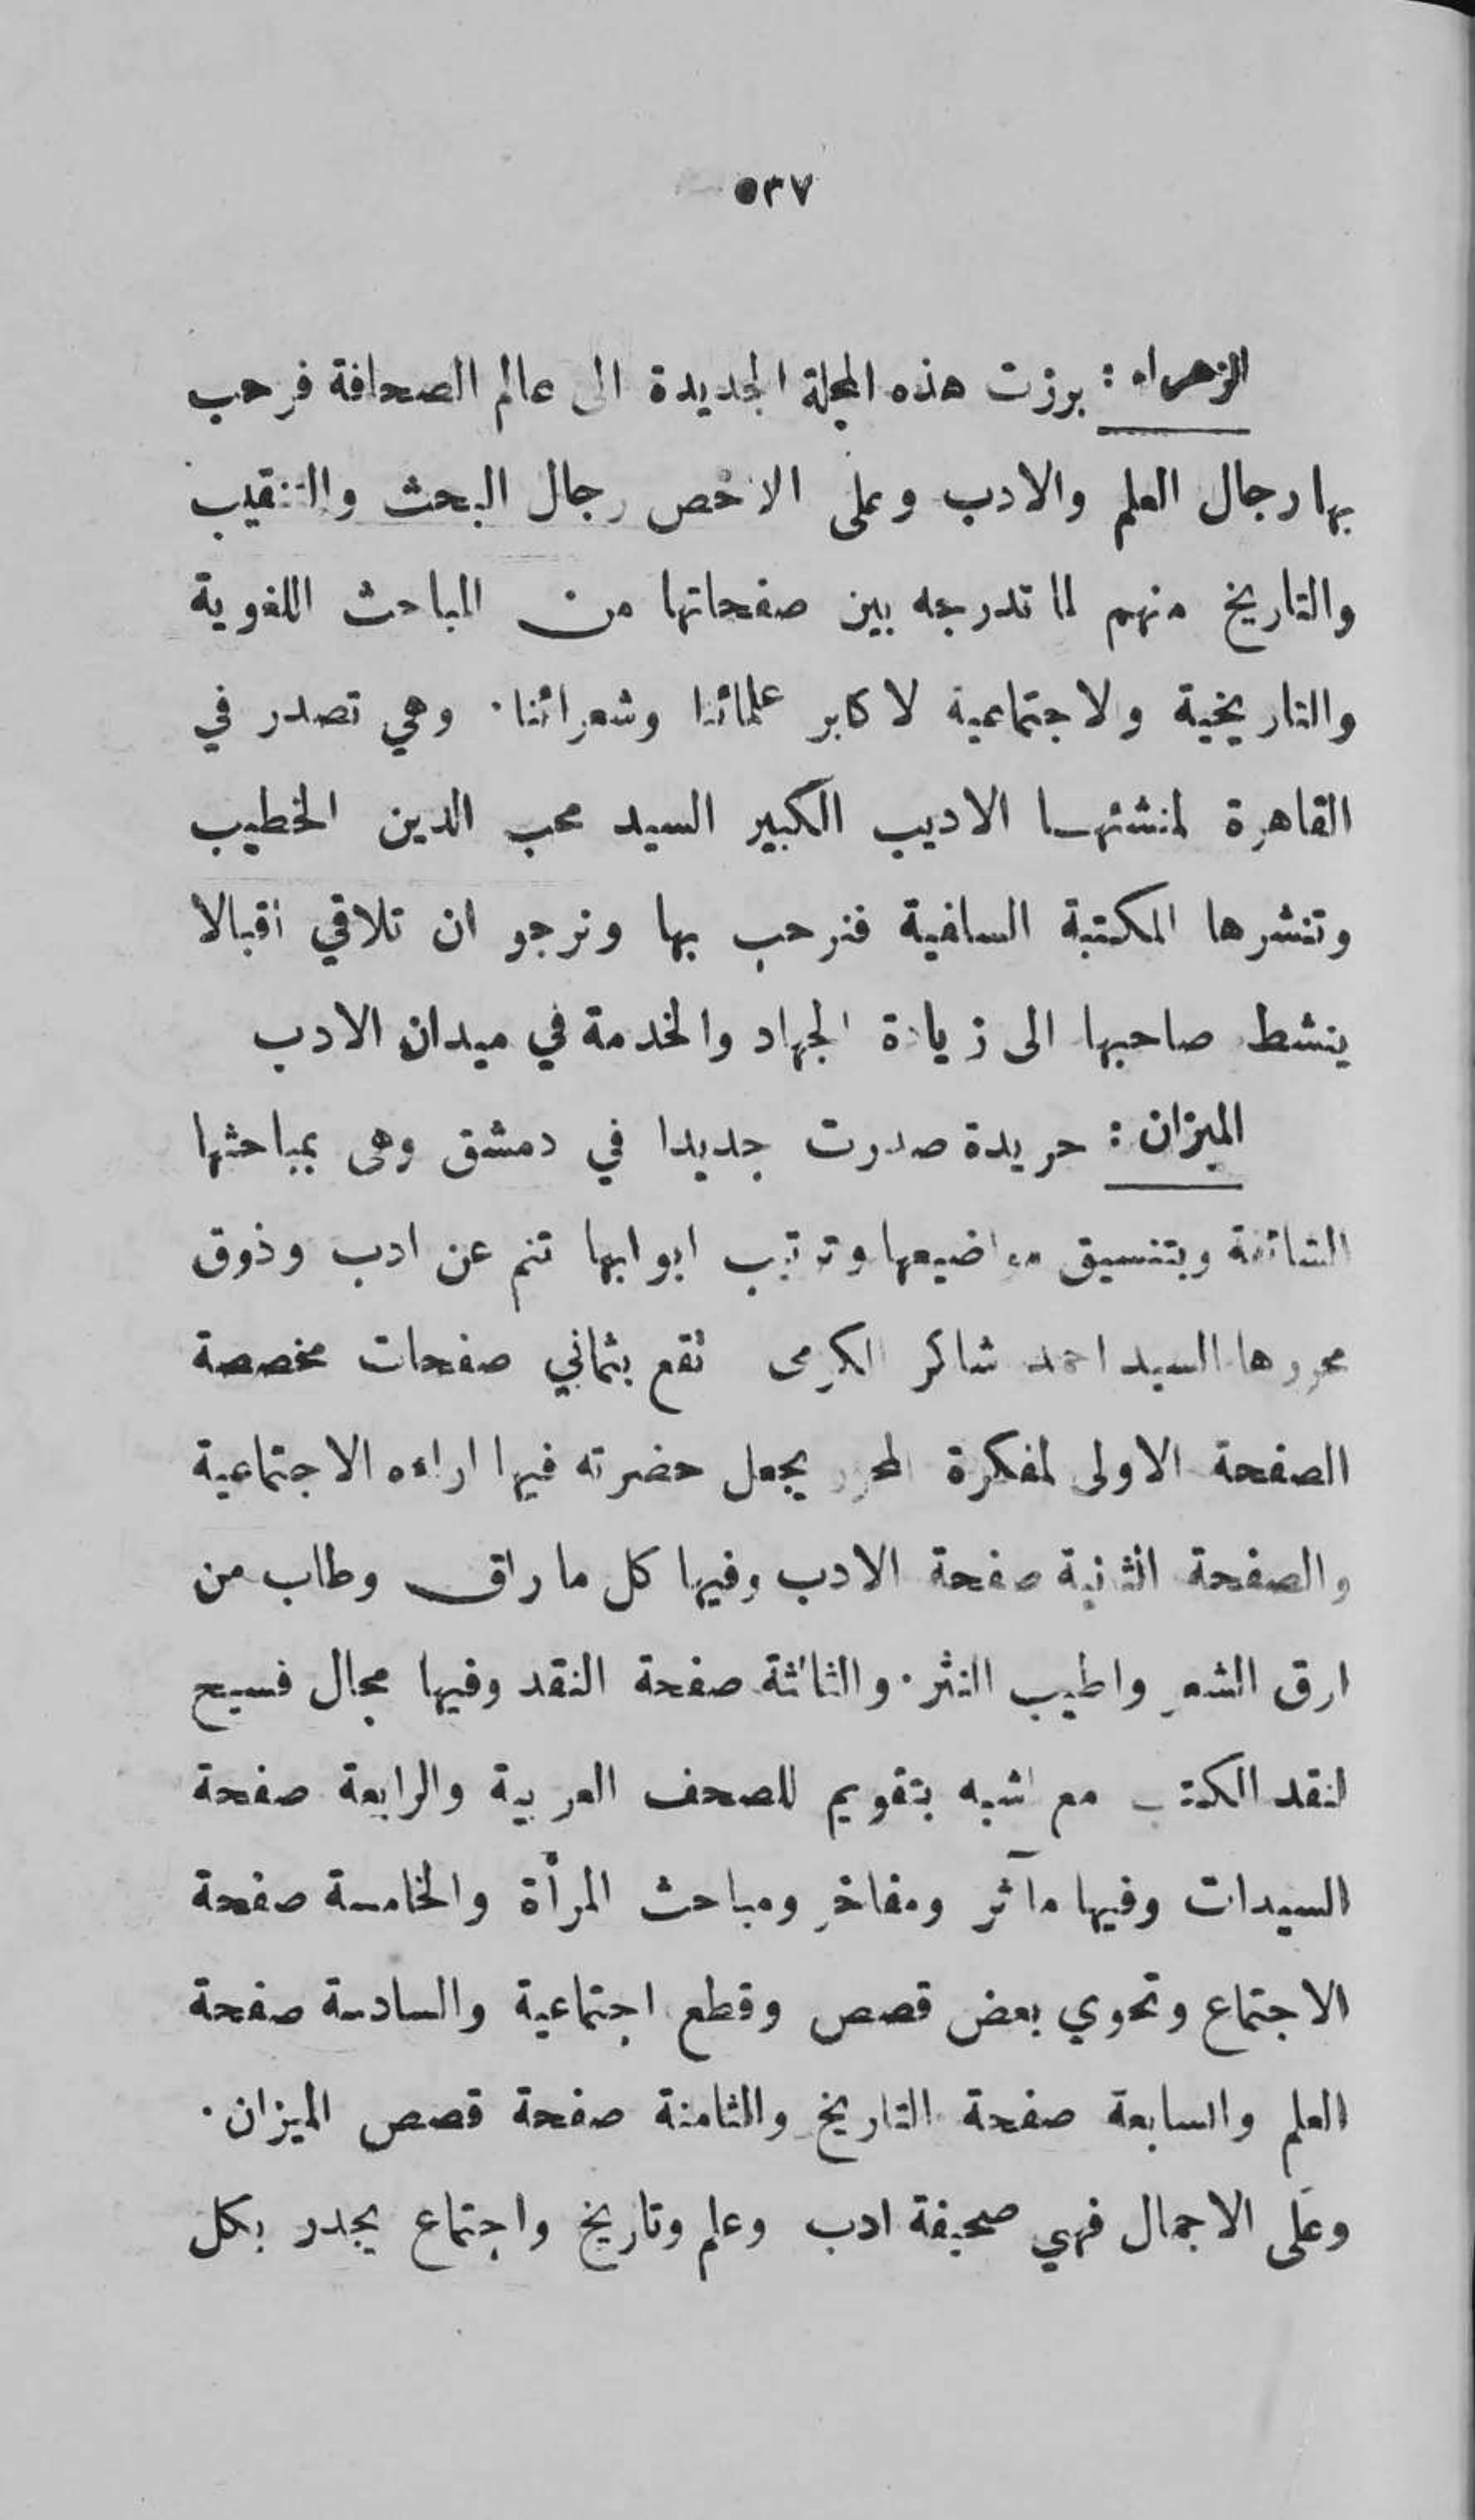 ٥٣٧
الزهراء : برزت هذه المجلة الجديدة الى عالم الصحافة فرحب
بها رجال العلم والادب وعلى الاخص رجال البحث والتنقيب
والتاريخ منهم لما تدرجه بين صفحاتها من المباحث اللغوية
والتاريخية ولاجتماعية لاكابر علمائنا وشعرائنا . وهي تصدر في
القاهرة لمنشئها الاديب الكبير السيد محب الدين الخطيب
وتنشرها المكتبة السلفية فنرحب بها ونرجو ان تلاقي اقبالا
ينشط صاحبها الى زيادة الجهاد والخدمة في ميدان الادب
الميزان : حريدة صدرت جديدا في دمشق وهى بمباحثها
الشائقة وبتنسيق مواضيعها وترتيب ابوابها تنم عن ادب وذوق
محررها السيد احمد شاكر الكرمى تقع بثماني صفحات مخصصة
الصفحة الاولى لمفكرة المحرر يجعل حضرته فيها اراءه الاجتماعية
والصفحة الثانية صفحة الادب وفيها كل ما راق وطاب من
ارق الشعر واطيب النثر . والثالثة صفحة النقد وفيها مجال فسيح
لنقد الكتب مع شبه بتقويم للصحف العربية والرابعة صفحة
السيدات وفيها مآثر ومفاخر ومباحث المرأة والخامسة صفحة
الاجتماع وتحوي بعض قصص وقطع اجتماعية والسادسة صفحة
العلم والسابعة صفحة التاريخ والثامنة صفحة قصص الميزان .
وعلى الاجمال فهي صحيفة ادب وعلم وتاريخ واجتماع يجدر بكل